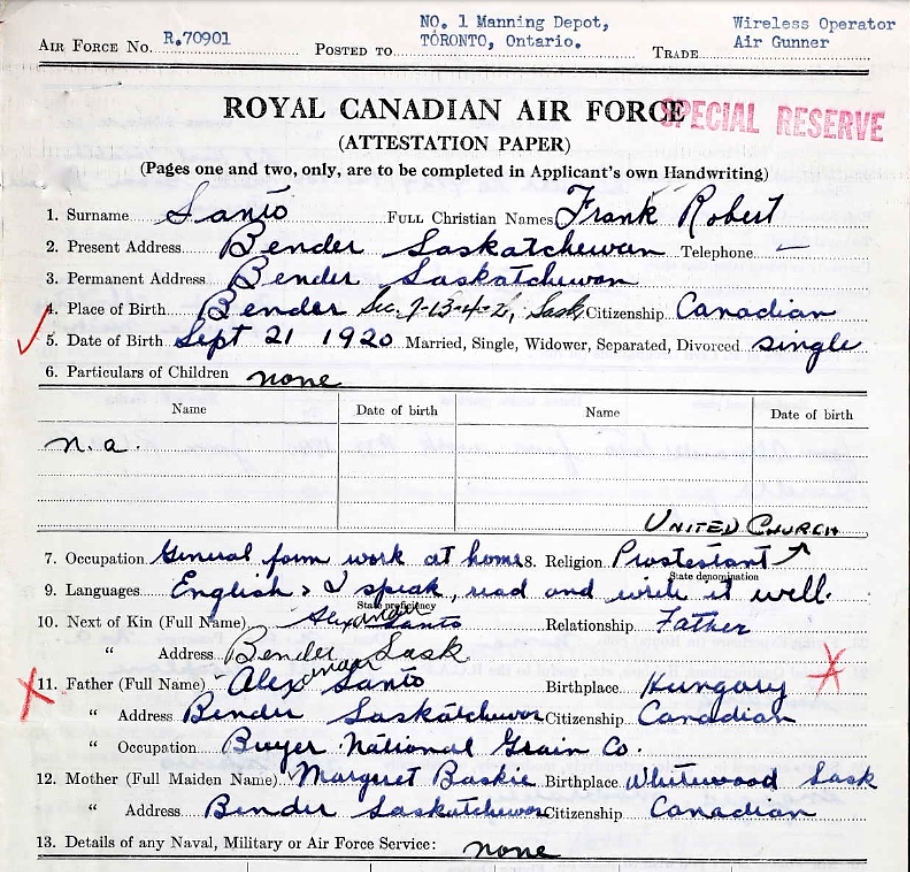 AIR FORCE NO. R.70901 POSTED TO NO. 1 Manning Depot, TORONTO, Ontario. TRADE Wireless Operator Air Gunner
ROYAL CANADIAN AIR FORCE SPECIAL RESERVE
(ATTESTATION PAPER)
(Pages one and two, only, are to be completed in Applicant's own Handwriting)
1. Surname Santo FULL Christian Names Frank Robert
2. Present Address Bender Saskatchewan Telephone —
3. Permanent Address Bender Saskatchewan
4. Place of Birth Bender Sec. 7-13-4-2, Sask Citizenship Canadian
5. Date of Birth Sept 21 1920 Married, Single, Widower, Separated, Divorced single
6. Particulars of Children none
Name Date of birth Name Date of birth
n.a.
UNITED CHURCH
7. Occupation General farm work at home 8. Religion Prostestant
State denomination
9. Languages English, I speak, read and write it well.
State proficiency
10. Next of Kin (Full Name) Alexander Santo Relationship Father
" Address Bender Sask
11. Father (Full Name) Alexander Santo Birthplace Hungary
" Address Bender Saskatchewan Citizenship Canadian
" Occupation Buyer National Grain Co.
12. Mother (Full Maiden Name) Margret Baskie Birthplace Whitewood Sask
" Address Bender Saskatchewan Citizenship Canadian
13. Details of any Naval, Military or Air Force Service: none